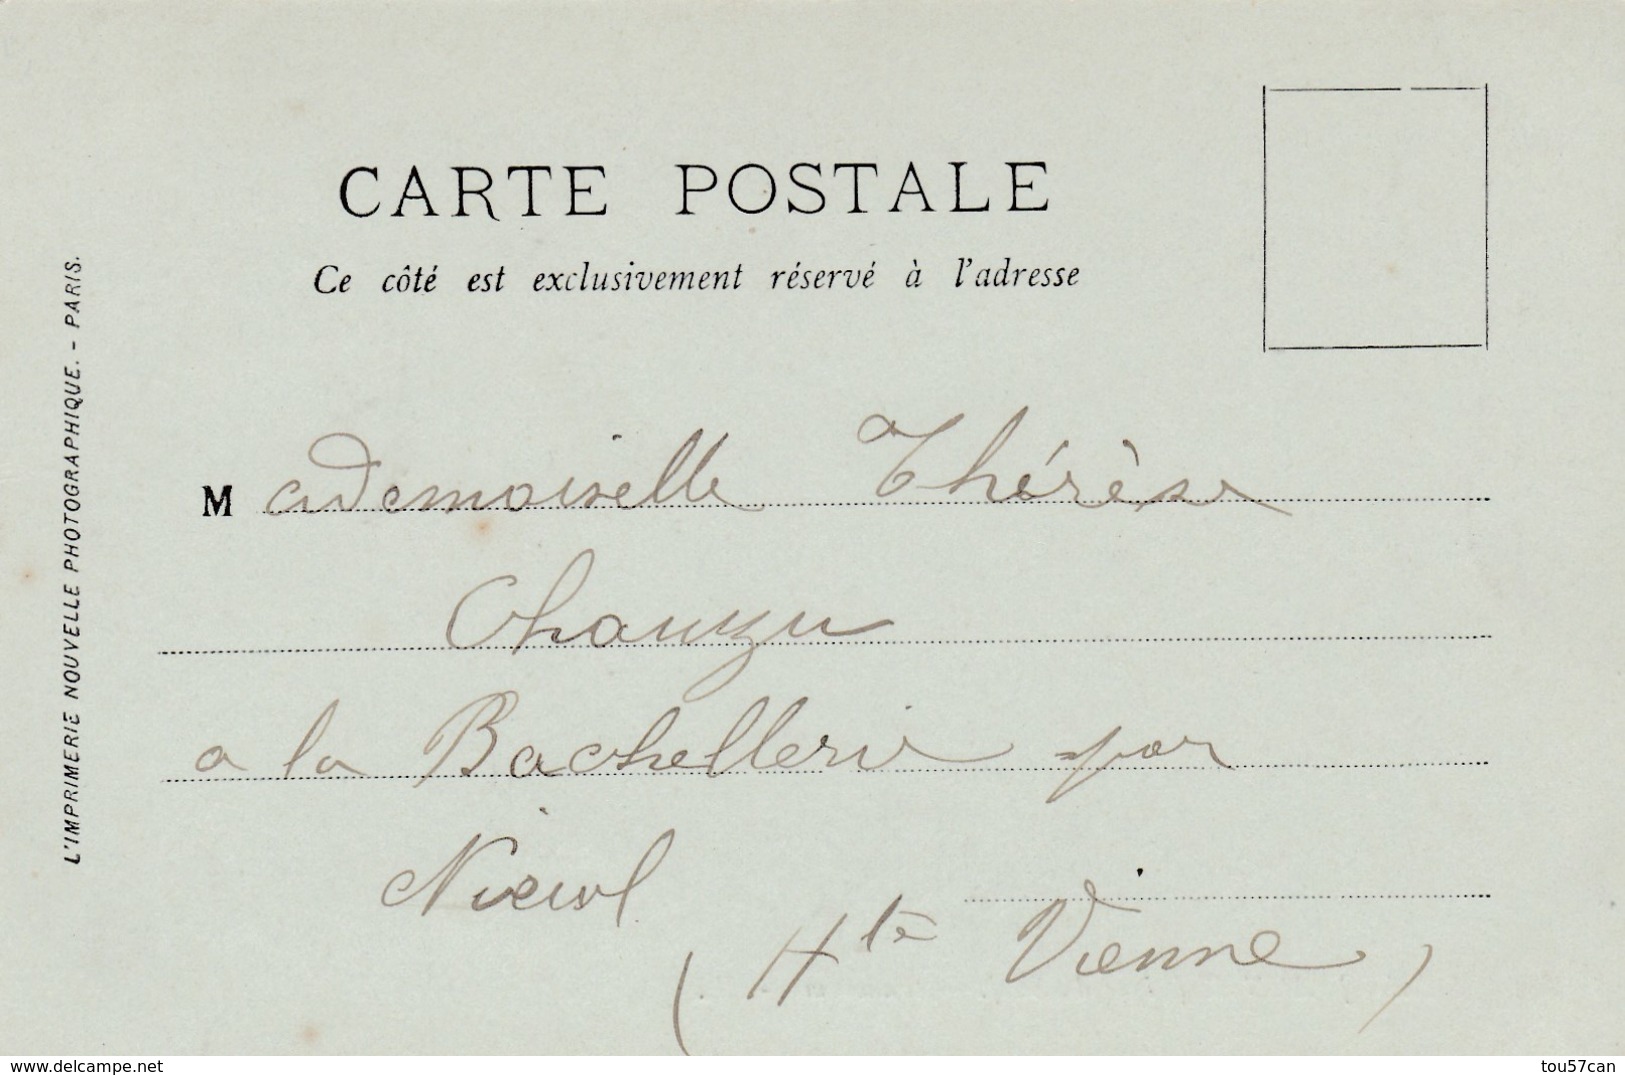 CARTE POSTALE
Ce côté est exclusivement réservé à l'adresse
L'IMPRIMERIE NOUVELLE PHOTOGRAPHIQUE. - PARIS.
Mademoiselle Thérèse
a la Bachellerie par
Nieul
(Hte Vienne)
https://www.delcampe.net
tou57can